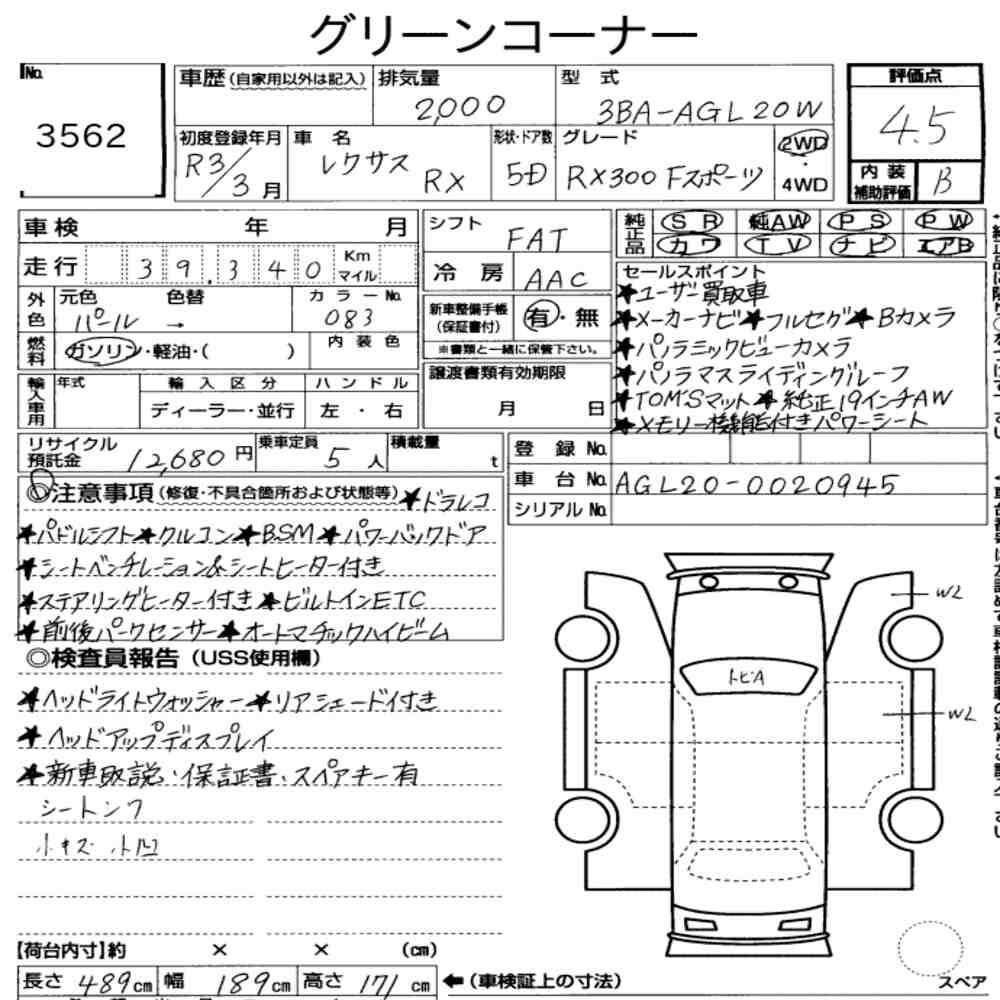 グリーンコーナー
No. 3562
車歴(自家用以外は記入) 排気量 2,000
型式 3BA-AGL20W
評価点 4.5
内装補助評価 B
初度登録年月 R3/3月
車名 レクサス RX
形状・ドア数 5D
グレード RX300 Fスポーツ
2WD・4WD
車検 年 月
走行 39,340 Km マイル
外色 元色 パール → 色替
カラーNo. 083
燃料 ガソリン・軽油・( )
内装色
輸入車用 年式 輸入区分 ハンドル
ディーラー・並行 左・右
シフト FAT
冷房 AAC
新車整備手帳(保証書付) 有・無
※書類と一緒に保管下さい。
譲渡書類有効期限
月 日
純正品 SR 純AW PS PW
カワ TV ナビ エアB
セールスポイント
★ユーザー買取車
★メーカーナビ★フルセグ★Bカメラ
★パノラミックビューカメラ
★パノラマスライディングルーフ
★TOM'Sマット★純正19インチAW
★メモリー機能付きパワーシート
リサイクル預託金 12,680円
乗車定員 5人
積載量 t
登録No.
車台No. AGL20-0020945
シリアルNo.
◎注意事項(修復・不具合箇所および状態等)★ドラレコ
★パドルシフト★クルコン★BSM★パワーバックドア
★シートベンチレーション&シートヒーター付き
★ステアリングヒーター付き★ビルトインETC
★前後パークセンサー★オートマチックハイビーム
◎検査員報告(USS使用欄)
★ヘッドライトウォッシャー★リアシェード付き
★ヘッドアップディスプレイ
★新車取説・保証書・スペアキー有
シートンワ
小キズ 小凹
WL
トビA
WL
【荷台内寸】約 × × (cm)
長さ 489cm 幅 189cm 高さ 171cm
←(車検証上の寸法)
スペア